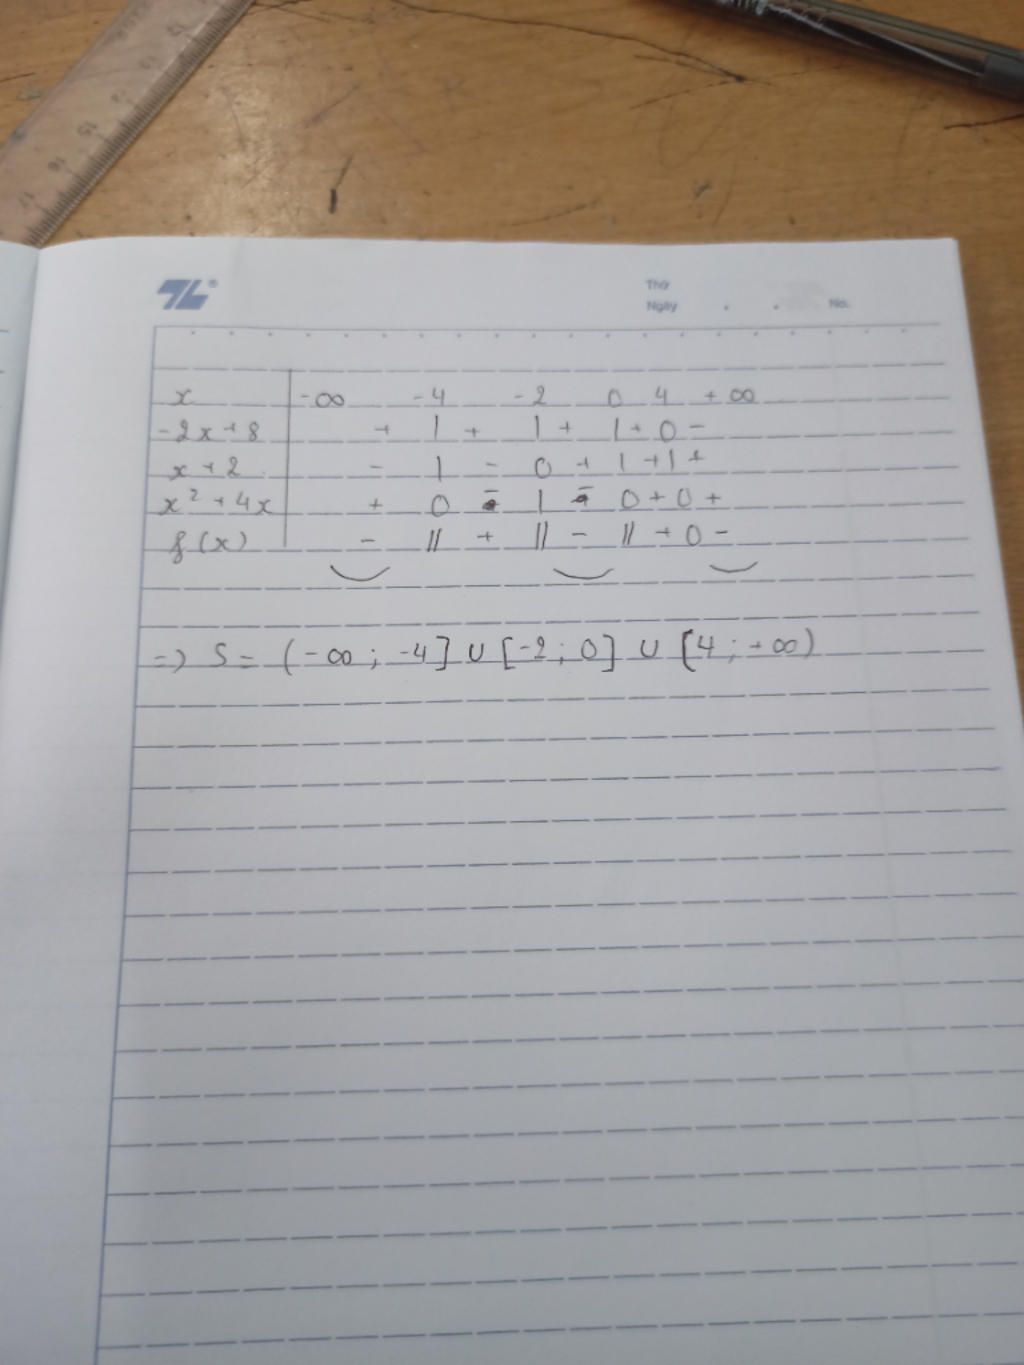 TL®
Thứ
Ngày . . No.
x | -∞ -4 -2 0 4 +∞
-2x+8 | + | + | + | + 0 -
x+2 | - | - 0 + | + | +
x² + 4x | + 0 - | - 0 + 0 +
f(x) | - || + || - || + 0 -
=) S = (-∞; -4] ∪ [-2; 0] ∪ [4; +∞)